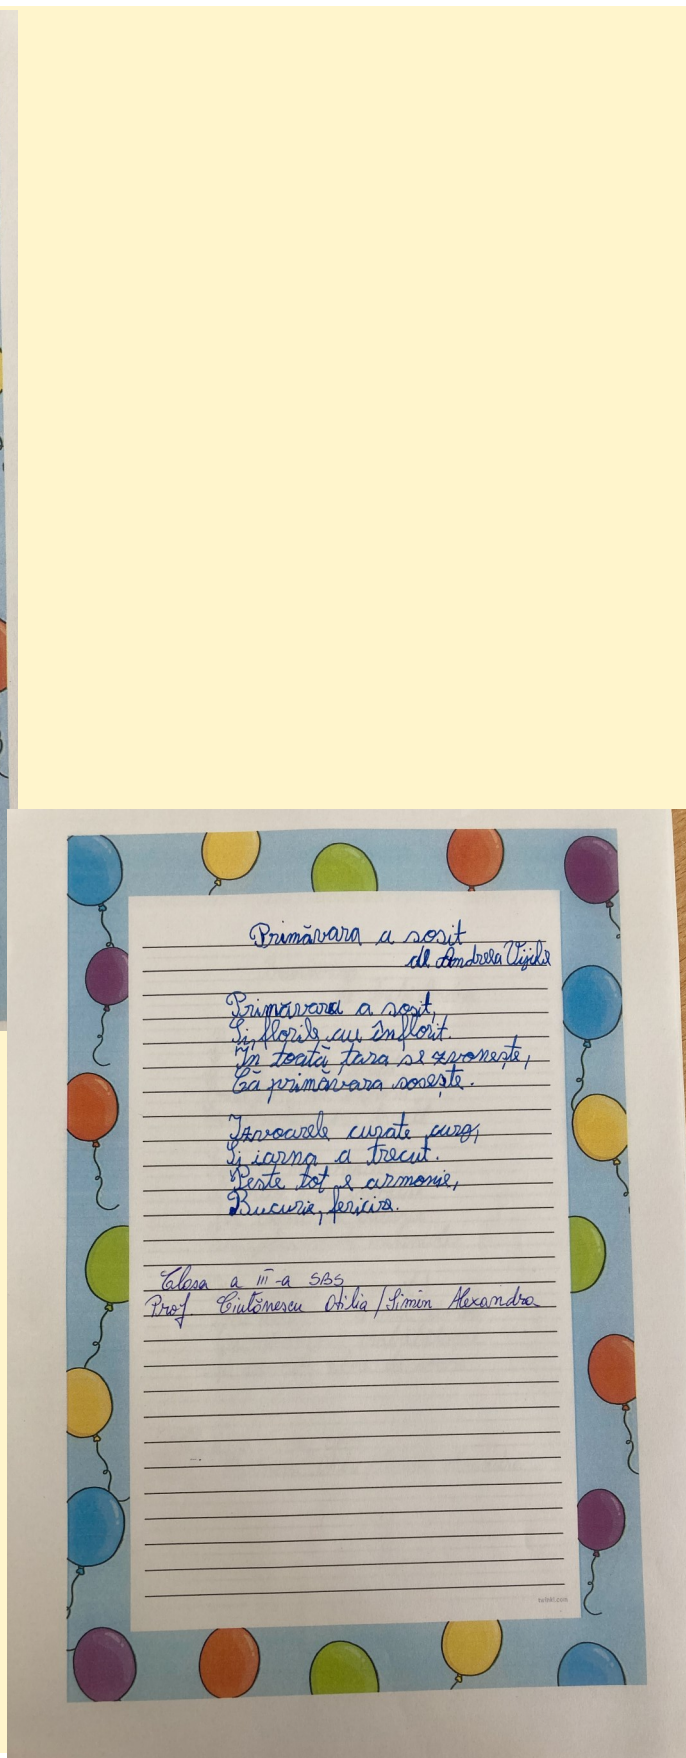 Primăvara a sosit
de Andreea Vijulie
Primăvara a sosit,
Și florile au înflorit.
În toată țara se zvonește,
Că primăvara sosește.
Izvoarele curate curg,
Și iarna a trecut.
Peste tot e armonie,
Bucurie, fericire.
Clasa a III-a SBS
Prof Ciulănescu Otilia / Simin Alexandra
twinkl.com